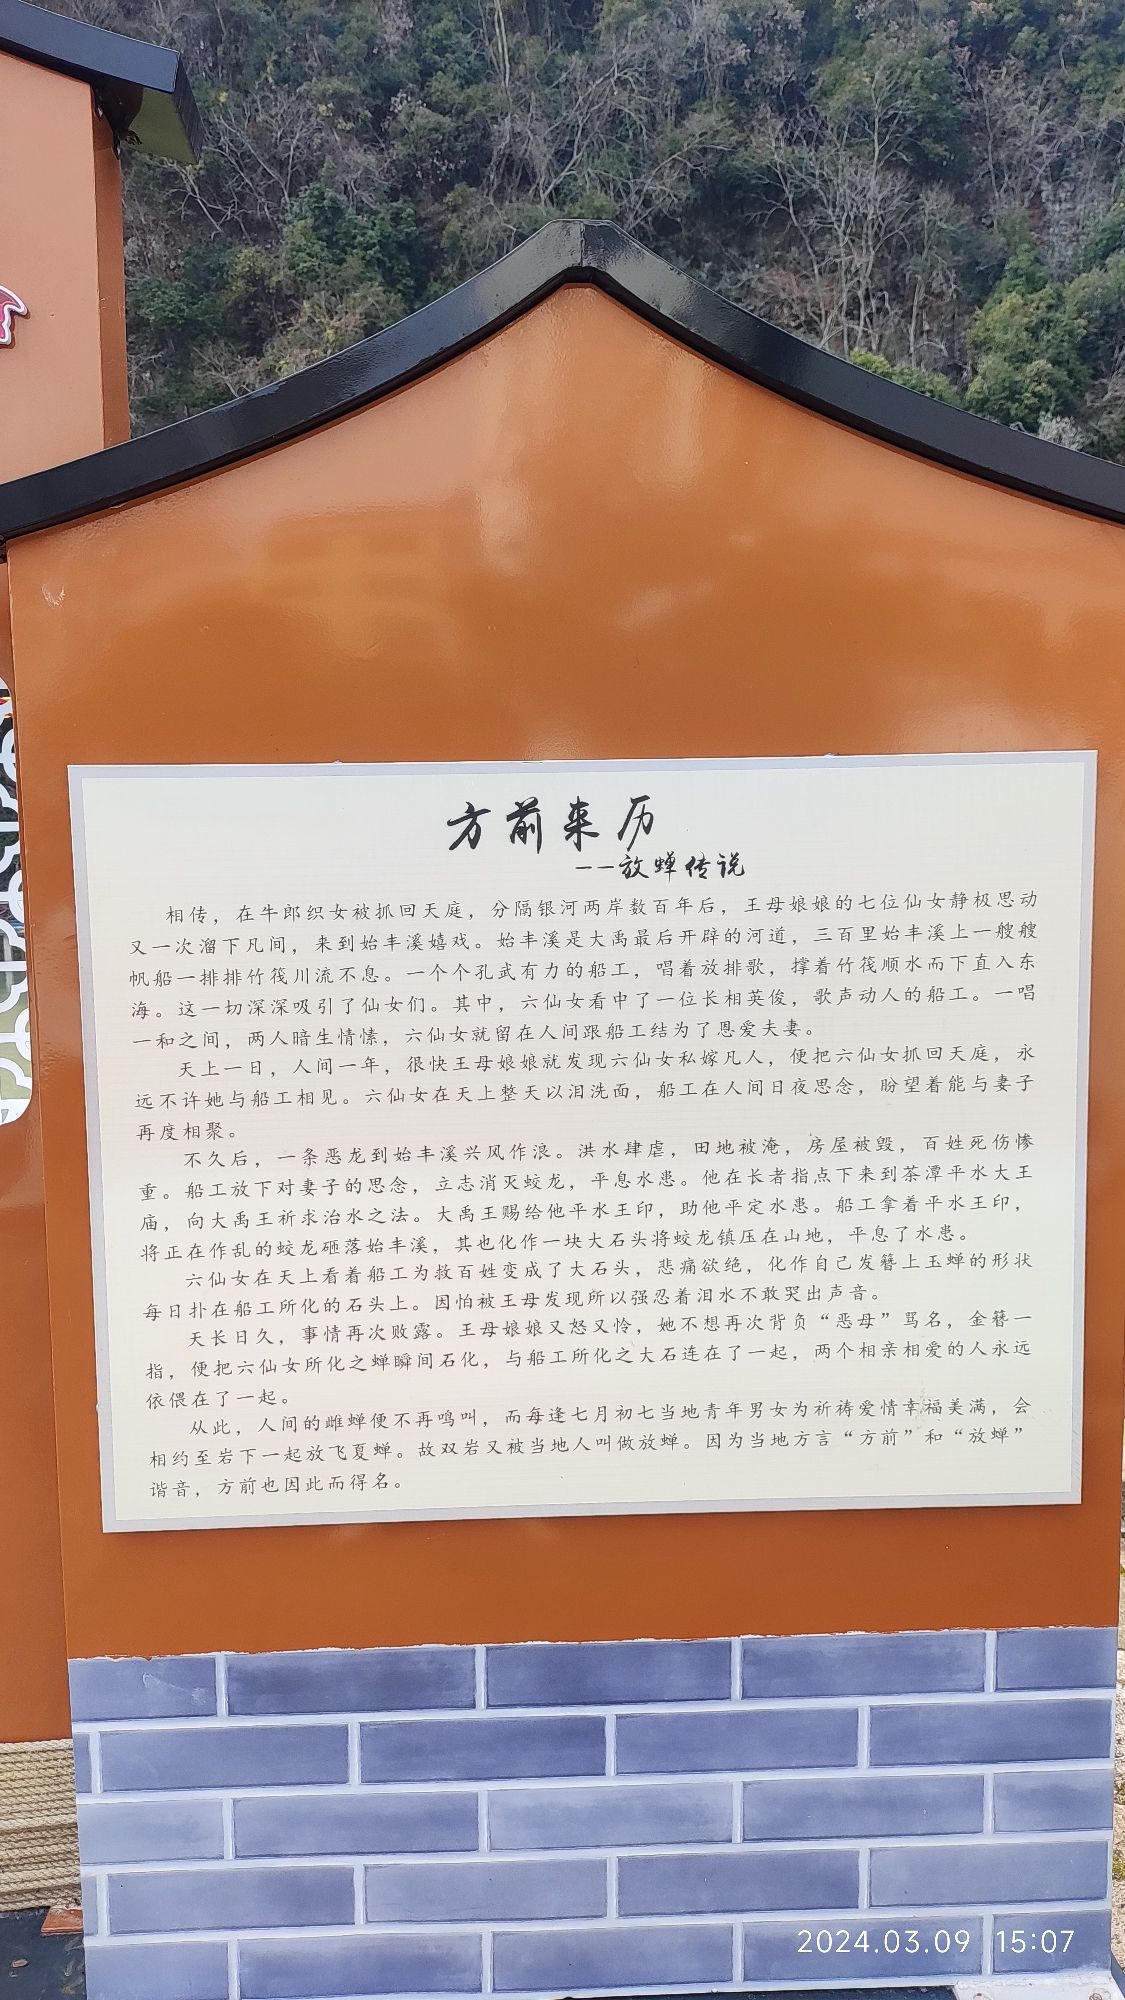 方前来历
——放蝉传说
相传，在牛郎织女被抓回天庭，分隔银河两岸数百年后，王母娘娘的七位仙女静极思动
又一次溜下凡间，来到始丰溪嬉戏。始丰溪是大禹最后开辟的河道，三百里始丰溪上一艘艘
帆船一排排竹筏川流不息。一个个孔武有力的船工，唱着放排歌，撑着竹筏顺水而下直入东
海。这一切深深吸引了仙女们。其中，六仙女看中了一位长相英俊，歌声动人的船工。一唱
一和之间，两人暗生情愫，六仙女就留在人间跟船工结为了恩爱夫妻。
天上一日，人间一年，很快王母娘娘就发现六仙女私嫁凡人，便把六仙女抓回天庭，永
远不许她与船工相见。六仙女在天上整天以泪洗面，船工在人间日夜思念，盼望着能与妻子
再度相聚。
不久后，一条恶龙到始丰溪兴风作浪。洪水肆虐，田地被淹，房屋被毁，百姓死伤惨
重。船工放下对妻子的思念，立志消灭蛟龙，平息水患。他在长者指点下来到茶潭平水大王
庙，向大禹王祈求治水之法。大禹王赐给他平水王印，助他平定水患。船工拿着平水王印，
将正在作乱的蛟龙砸落始丰溪，其也化作一块大石头将蛟龙镇压在山地，平息了水患。
六仙女在天上看着船工为救百姓变成了大石头，悲痛欲绝，化作自己发簪上玉蝉的形状
每日扑在船工所化的石头上。因怕被王母发现所以强忍着泪水不敢哭出声音。
天长日久，事情再次败露。王母娘娘又怒又怜，她不想再次背负“恶母”骂名，金簪一
指，便把六仙女所化之蝉瞬间石化，与船工所化之大石连在了一起，两个相亲相爱的人永远
依偎在了一起。
从此，人间的雌蝉便不再鸣叫，而每逢七月初七当地青年男女为祈祷爱情幸福美满，会
相约至岩下一起放飞夏蝉。故双岩又被当地人叫做放蝉。因为当地方言“方前”和“放蝉”
谐音，方前也因此而得名。
2024.03.09 15:07